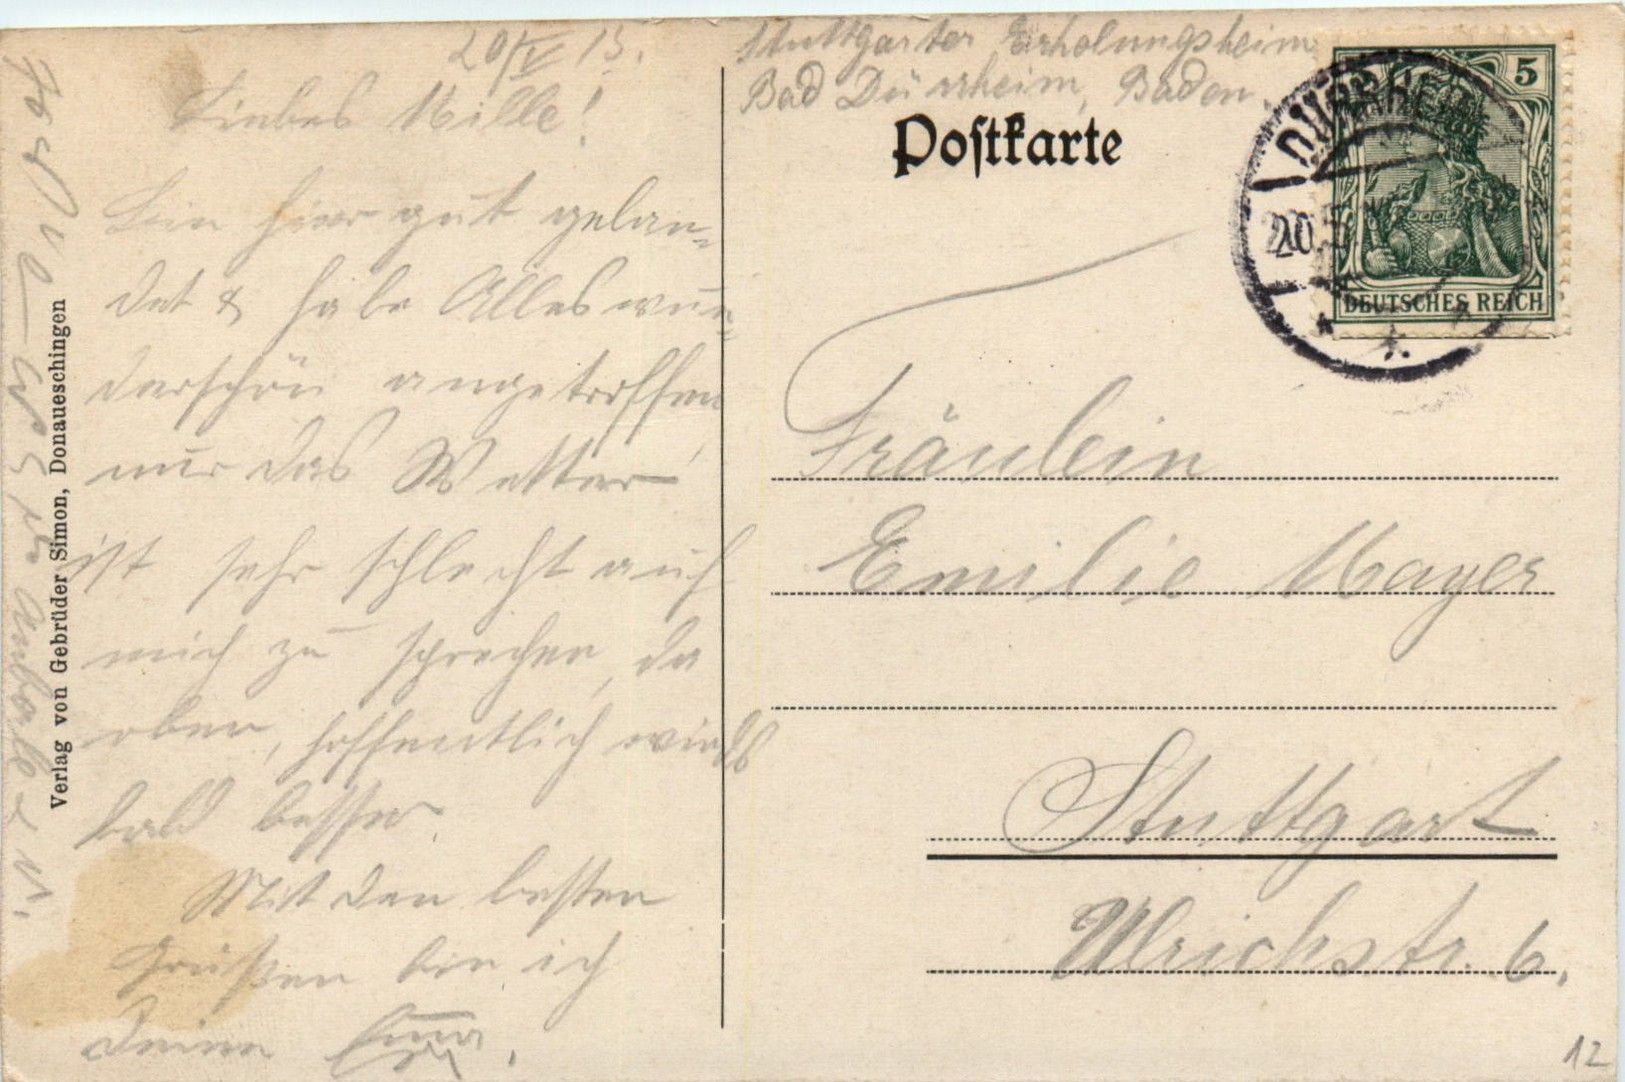 20/V 13.
Liebes Mille!
Bin hier gut gelan-
det & habe Alles wun-
derschön angetroffen
nur das Wetter
ist sehr schlecht auf
mich zu sprechen, da
oben, hoffentlich wirds
bald besser.
Mit den besten
Grüßen bin ich
Deine
Verlag von Gebrüder Simon, Donaueschingen
Stuttgarter Erholungsheim
Bad Dürrheim, Baden.
Postkarte
DÜRRHEIM
20.
5
DEUTSCHES REICH
Fräulein
Emilie Mayer
Stuttgart
Ulrichstr. 6.
12